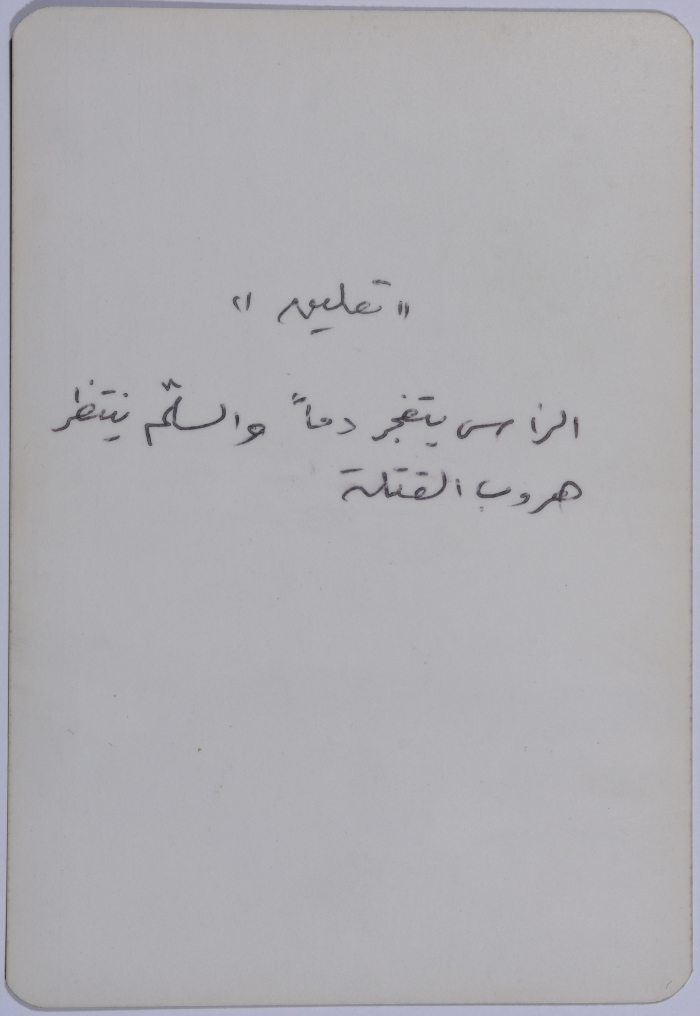 « تعليق »
الرأس يتفجر دماً والسلّم ينتظر
هروب القتلة